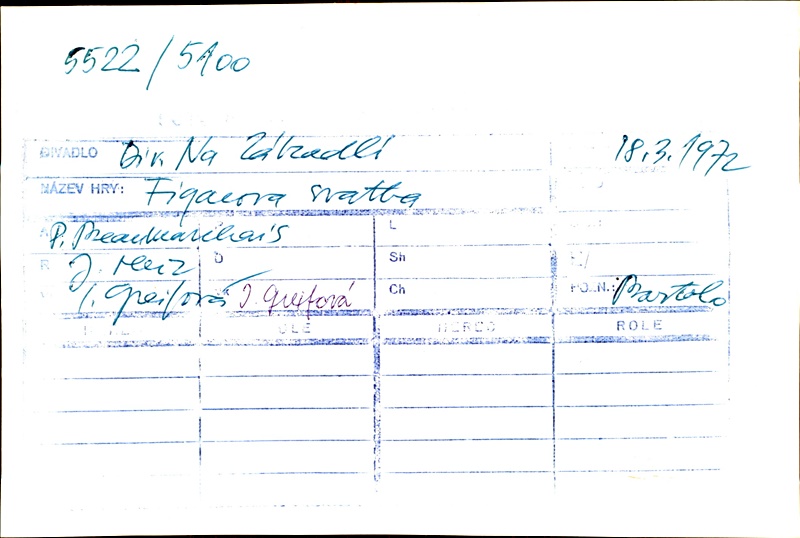 5522/5100
DIVADLO Div Na Zábradlí 18.3.1972
NÁZEV HRY: Figarova svatba
P. Beaumarchais L
R J. Menz O Sh
J. Greifová J. Greifová Ch PO.N.: Bartolo
ROLE HEREC ROLE